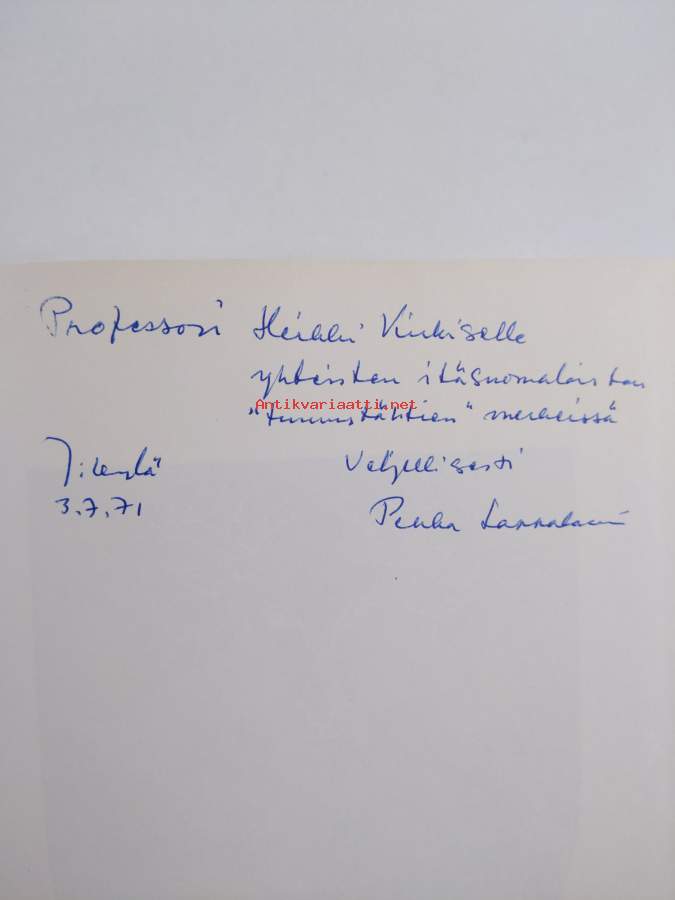 Professori Heikki Kirkiselle
yhteisten itäsuomalaisten
Antikvariaatti.net
"tunnustähtien" merkeissä
Veljellisesti
3.7.71
Pekka Lappalainen